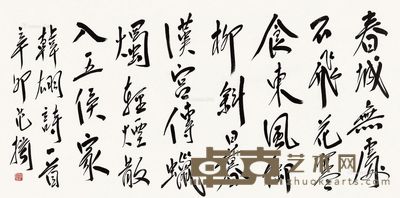 春城無處
不飛花寒
食東風御
柳斜日暮
漢宮傳蠟
燭輕煙散
入五侯家
韓翃詩一首
辛卯
卓克艺术网